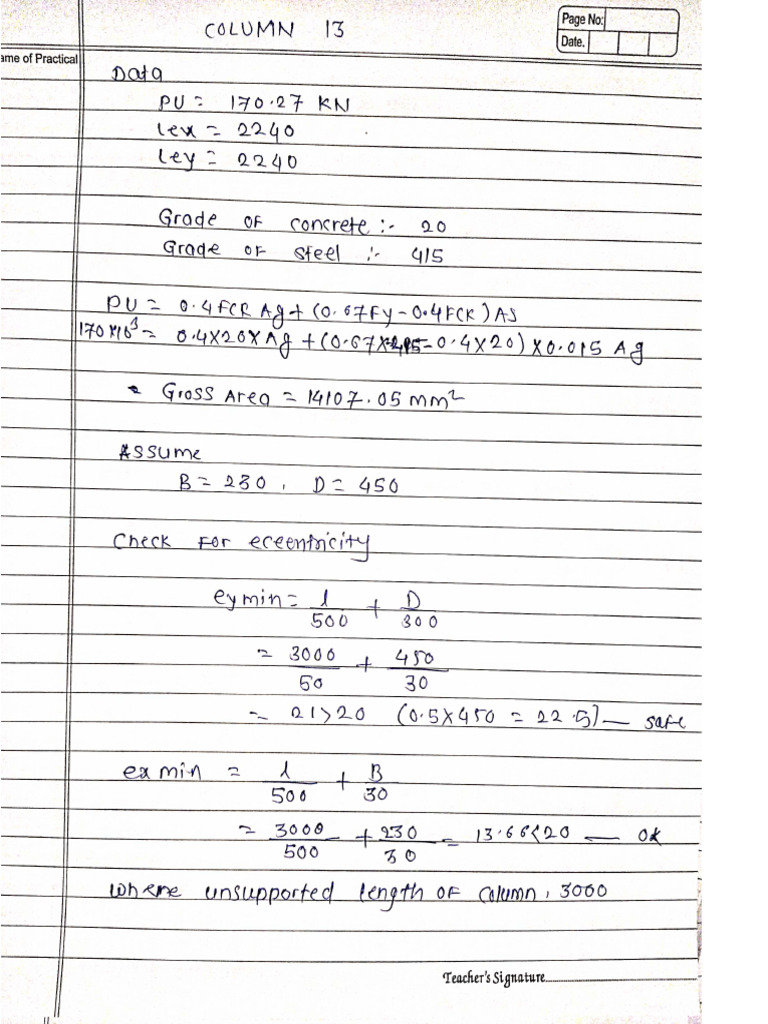 COLUMN 13
Page No:
Date.
ame of Practical
Data
PU = 170.27 KN
lex = 2240
ley = 2240
Grade OF concrete :- 20
Grade OF steel :- 415
PU = 0.4 FCK Ag + (0.67Fy - 0.4FCK) AS
170×10³ = 0.4×20×Ag + (0.67×415 - 0.4×20) × 0.015 Ag
Gross Area = 14107.05 mm²
Assume
B = 230, D = 450
Check For eceentricity
ey min = l/500 + D/300
= 3000/50 + 450/30
= 21>20 (0.5×450 = 22.5) — safe
ex min = l/500 + B/30
= 3000/500 + 230/30 = 13.66<20 — OK
Where unsupported length OF Column, 3000
Teacher's Signature